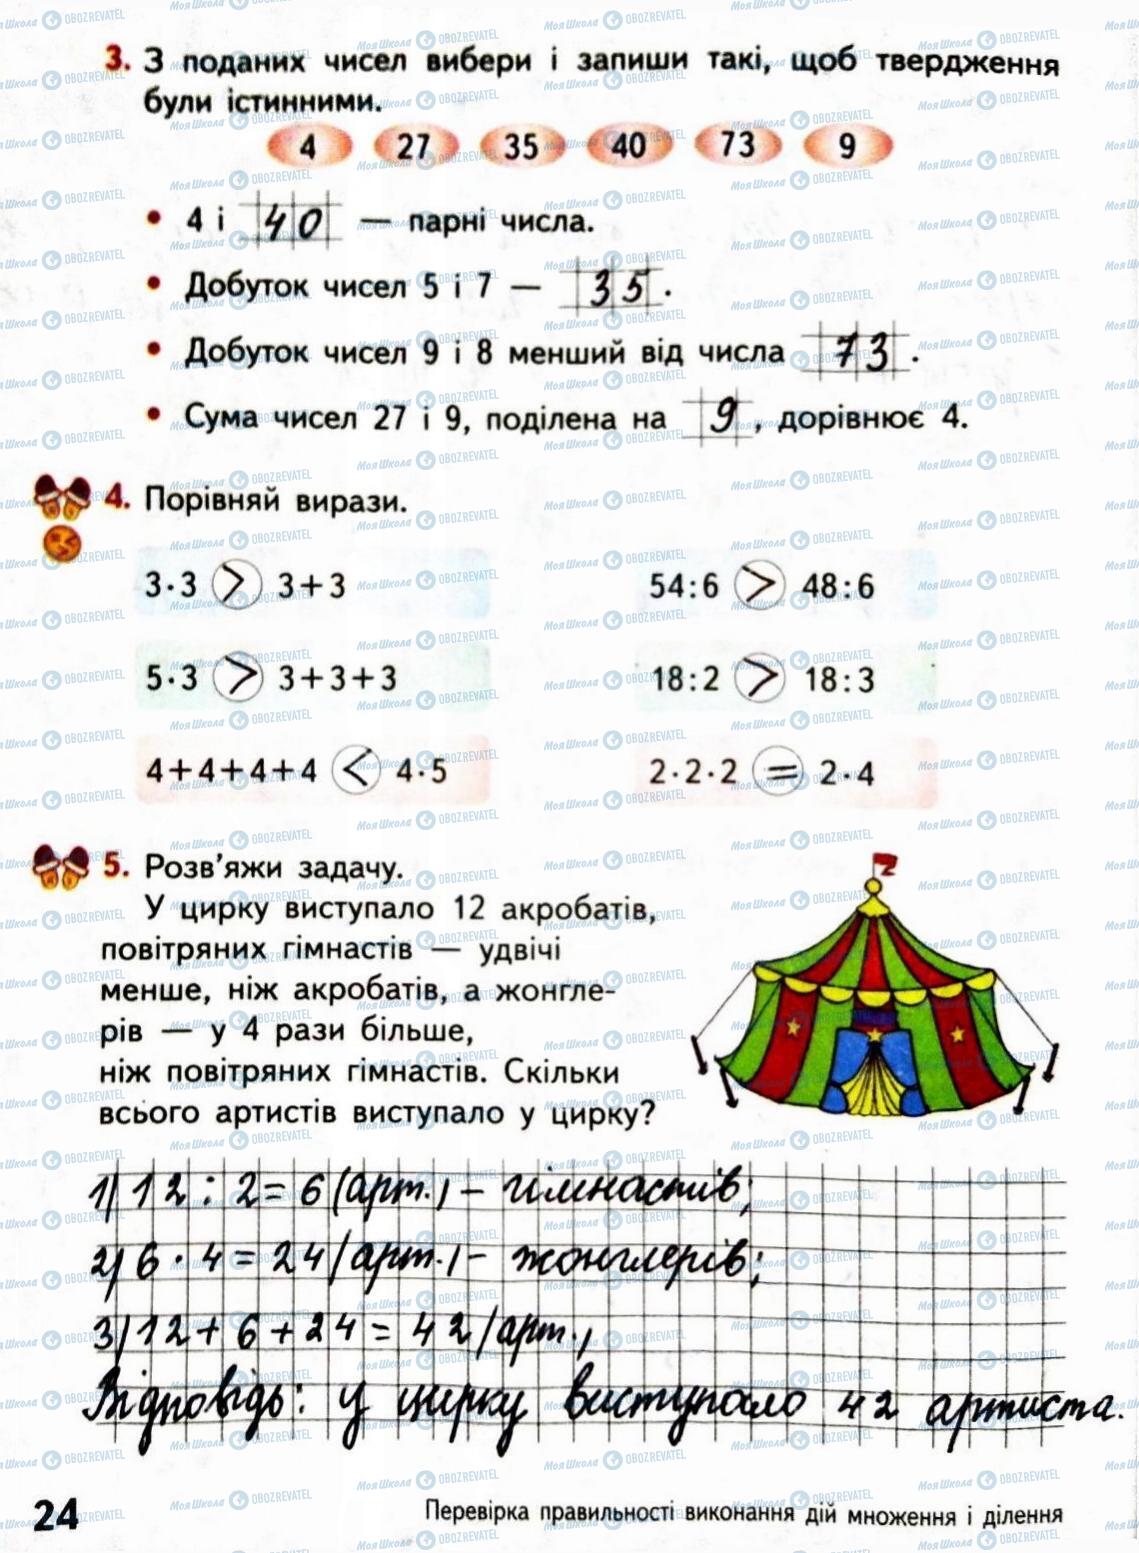 3. З поданих чисел вибери і запиши такі, щоб твердження
були істинними.
4 27 35 40 73 9
• 4 і 40 — парні числа.
• Добуток чисел 5 і 7 — 35.
• Добуток чисел 9 і 8 менший від числа 73.
• Сума чисел 27 і 9, поділена на 9, дорівнює 4.
4. Порівняй вирази.
3·3 > 3+3 54:6 > 48:6
5·3 > 3+3+3 18:2 > 18:3
4+4+4+4 < 4·5 2·2·2 = 2·4
5. Розв'яжи задачу.
У цирку виступало 12 акробатів,
повітряних гімнастів — удвічі
менше, ніж акробатів, а жонгле-
рів — у 4 рази більше,
ніж повітряних гімнастів. Скільки
всього артистів виступало у цирку?
1) 12 : 2 = 6 (арт.) - гімнастів;
2) 6 · 4 = 24 (арт.) - жонглерів;
3) 12 + 6 + 24 = 42 (арт.)
Відповідь: у цирку виступало 42 артиста.
24 Перевірка правильності виконання дій множення і ділення
МояШкола OBOZREVATEL